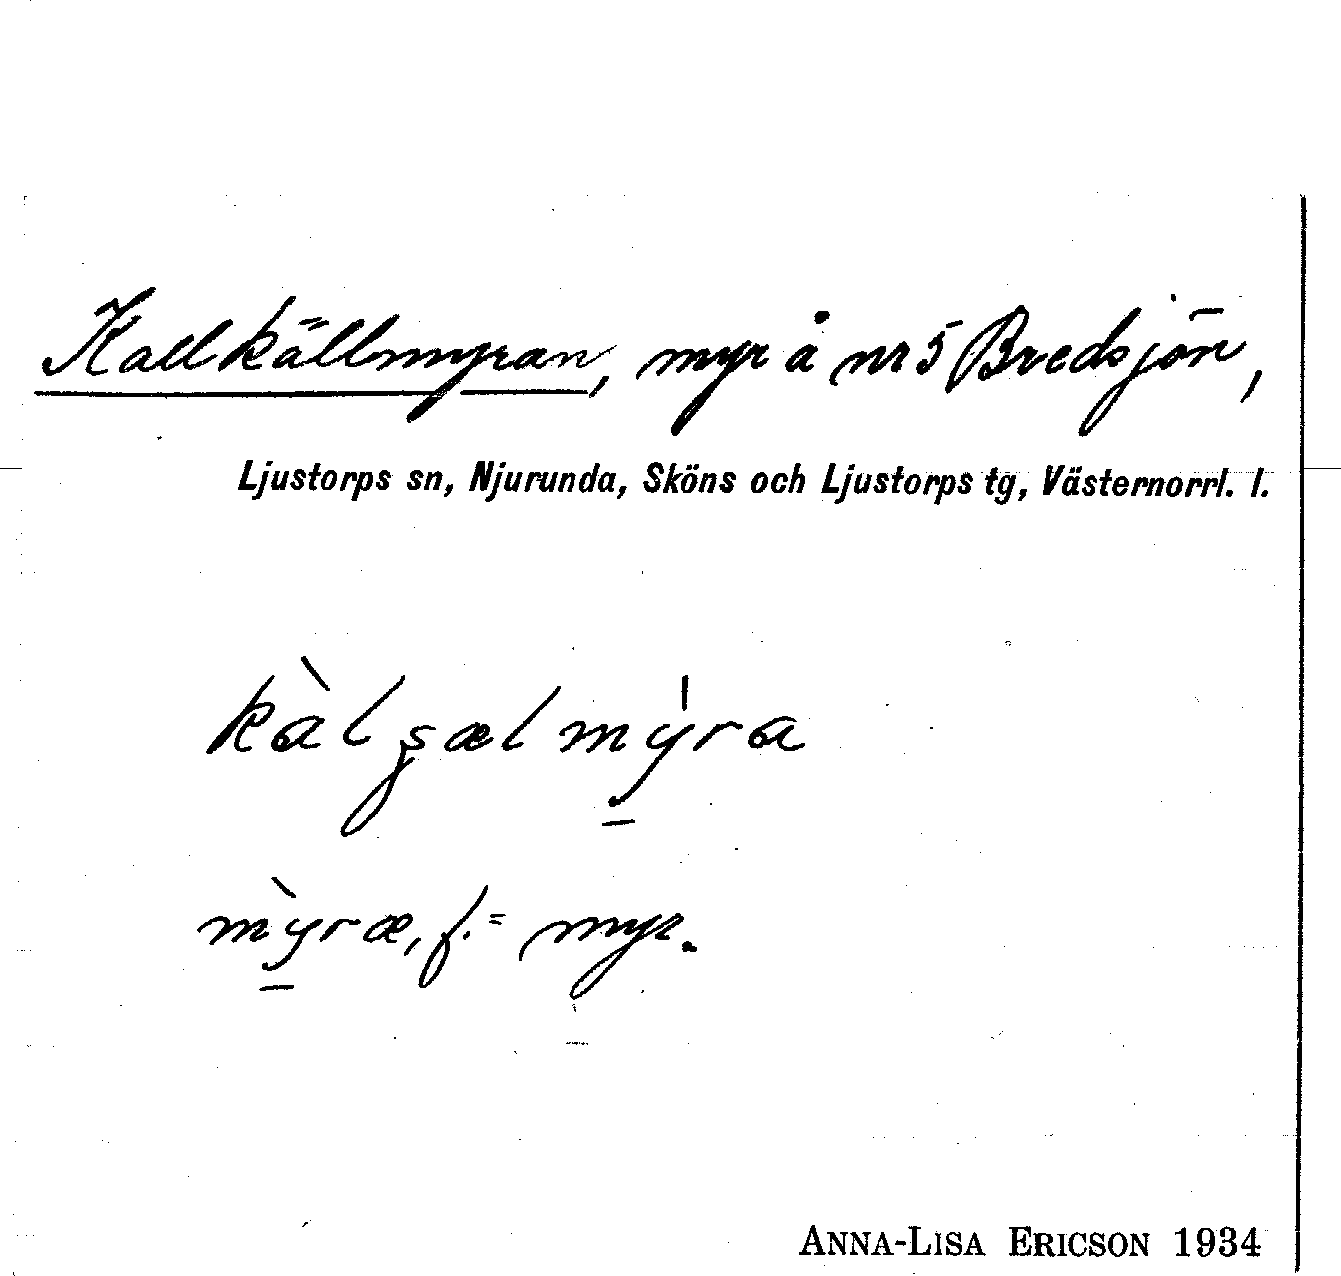 Kallkällmyran, myr å nr 5 Bredsjön,
Ljustorps sn, Njurunda, Sköns och Ljustorps tg, Västernorrl. l.
kàlʂælmy̱̍ra
mỳ̱ræ, f. = myr.
ANNA-LISA ERICSON 1934